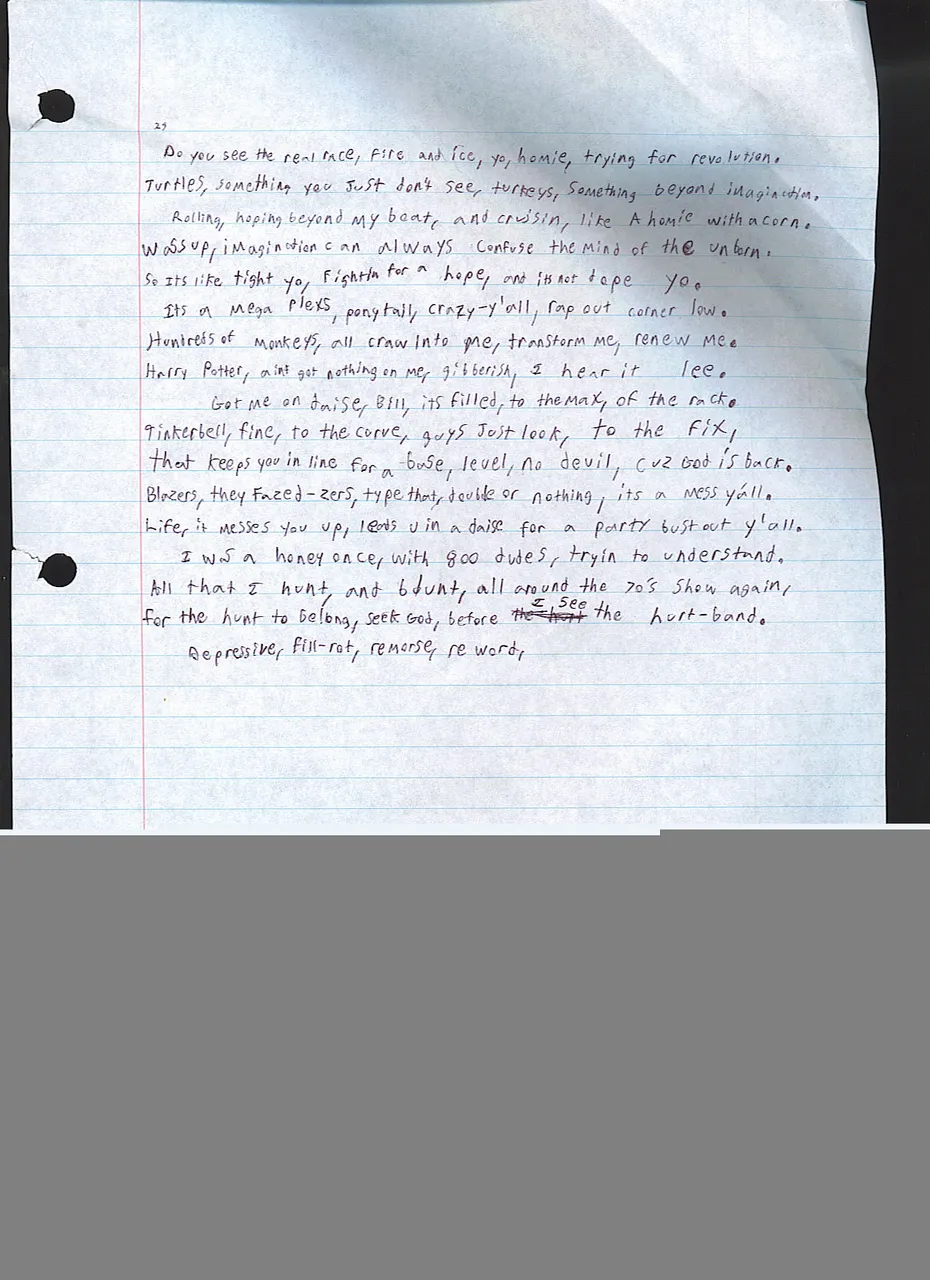 29
Do you see the real race, Fire and ice, yo, homie, trying for revolution.
Turtles, something you Just don't see, turkeys, Something beyond imagination.
Rolling, hoping beyond my beat, and cruisin, like A homie with acorn.
Wassup, imagination can always Confuse the Mind of the unborn.
So Its like tight yo, Fightin for a hope, and its not dope yo.
Its a Mega Plexs, ponytail, crazy-y'all, rap out corner low.
Hundreds of monkeys, all craw Into me, transform me, renew me.
Harry Potter, aint got nothing on me, gibberish, I hear it lee.
Got me on daise, Bill, its filled, to the Max, of the rack.
Tinkerbell, fine, to the curve, guys Just look, to the Fix,
that keeps you in line for a base, level, no devil, cuz God is back.
Blazers, they Fazed-zers, type that, double or nothing, its a mess y'all.
Life, it messes you up, leads u in a daise for a party bust out y'all.
I was a honey once, with 800 dudes, tryin to understand.
All that I hunt, and blunt, all around the 70's Show again,
for the hunt to belong, seek God, before the hurt I, See the hurt-band.
Depressive, fill-rot, remorse, re word,